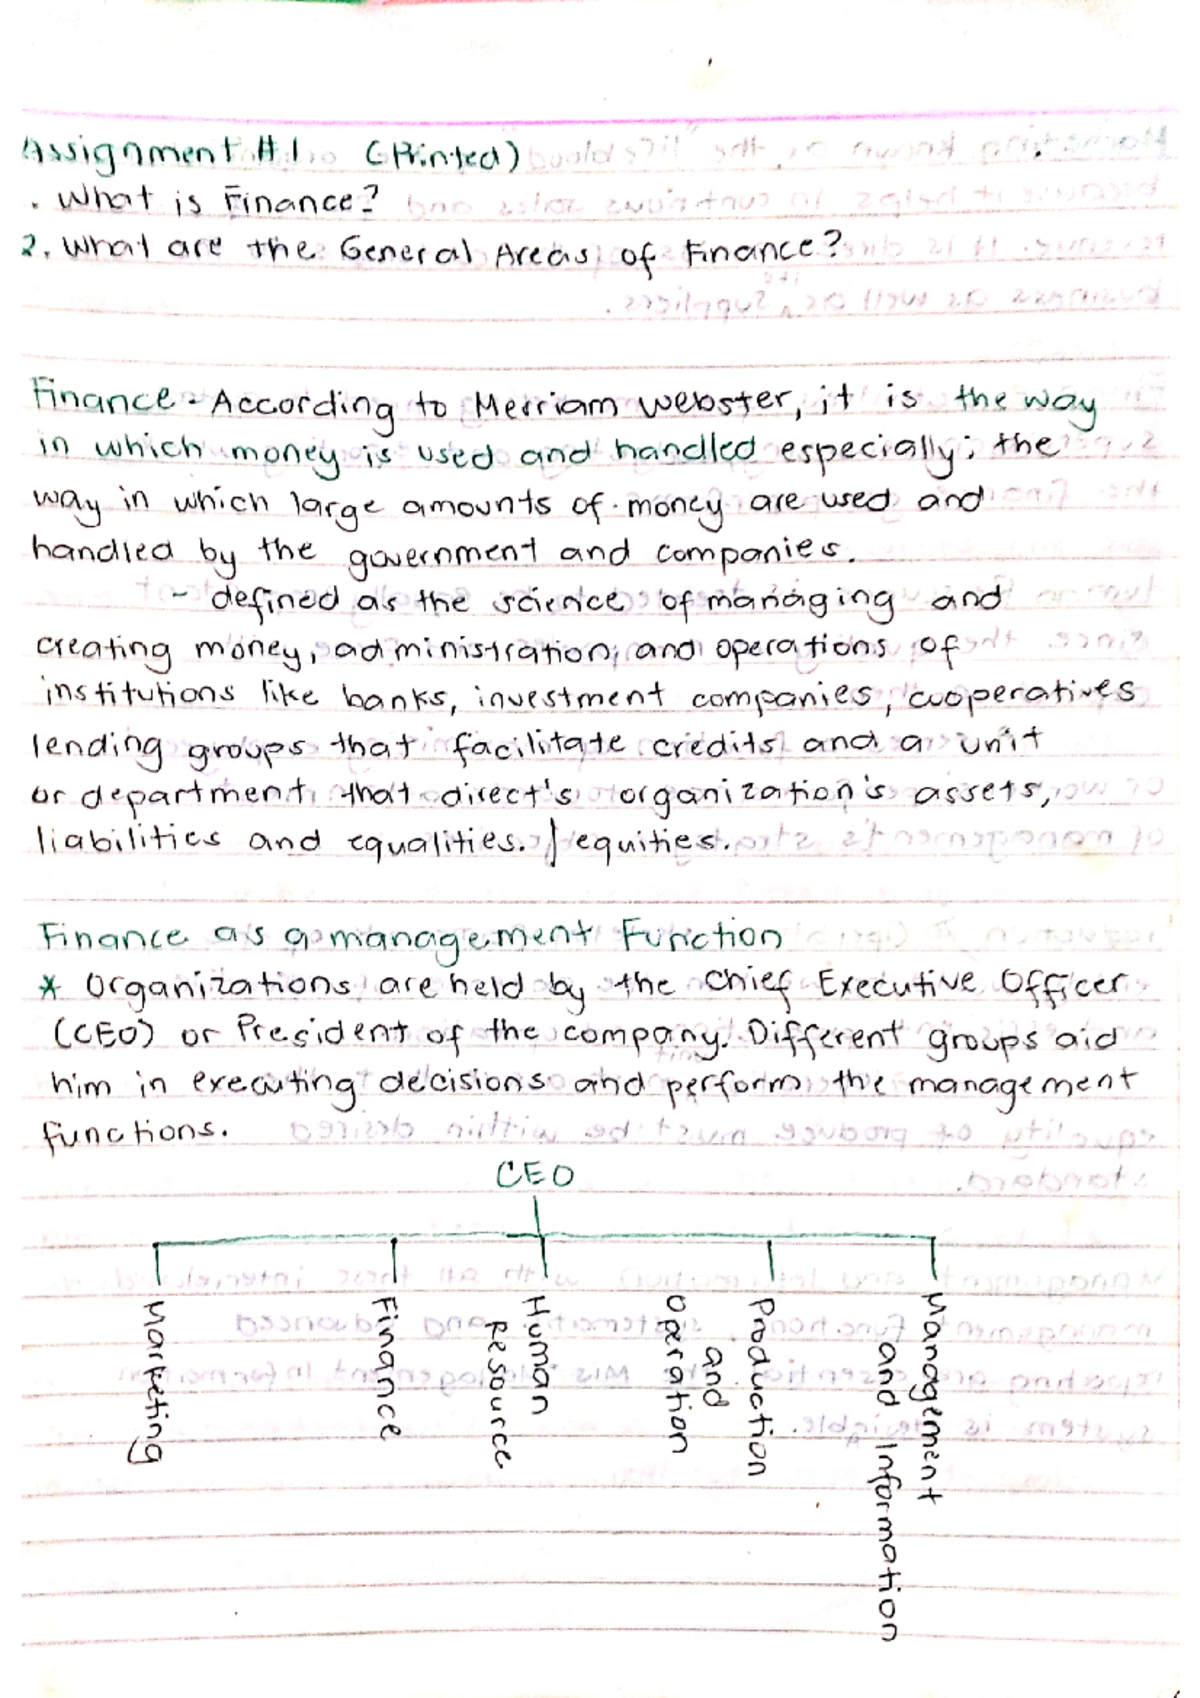 Assignment #1 (Printed)
. What is Finance?
2. What are the General Areas of Finance?
Finance - According to Merriam Webster, it is the way
in which money is used and handled especially; the
way in which large amounts of money are used and
handled by the government and companies.
- defined as the science of managing and
creating money, administration, and operations of
institutions like banks, investment companies, cooperatives
lending groups that facilitate credits and a unit
or department that direct's organization's assets,
liabilities and equalities. / equities.
Finance as a management Function
* Organizations are held by the Chief Executive Officer
(CEO) or President of the company. Different groups aid
him in executing decisions and perform the management
functions.
CEO
Marketing
Finance
Human
Resource
Production
and
Operation
Management
and Information